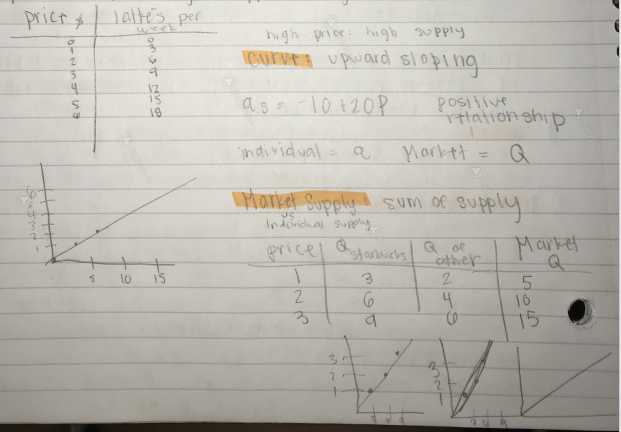 price $ latte's per week
0 0
1 3
2 6
3 9
4 12
5 15
6 18
high price: high supply
curve: upward sloping
qs = -10 + 20P positive relationship
individual = q Market = Q
Market Supply: sum of supply
vs
Individual supply
price Q starbucks Q of other Market Q
1 3 2 5
2 6 4 10
3 9 6 15
6
5
4
3
2
1
5 10 15
3
2
1
3 6 9
3
2
1